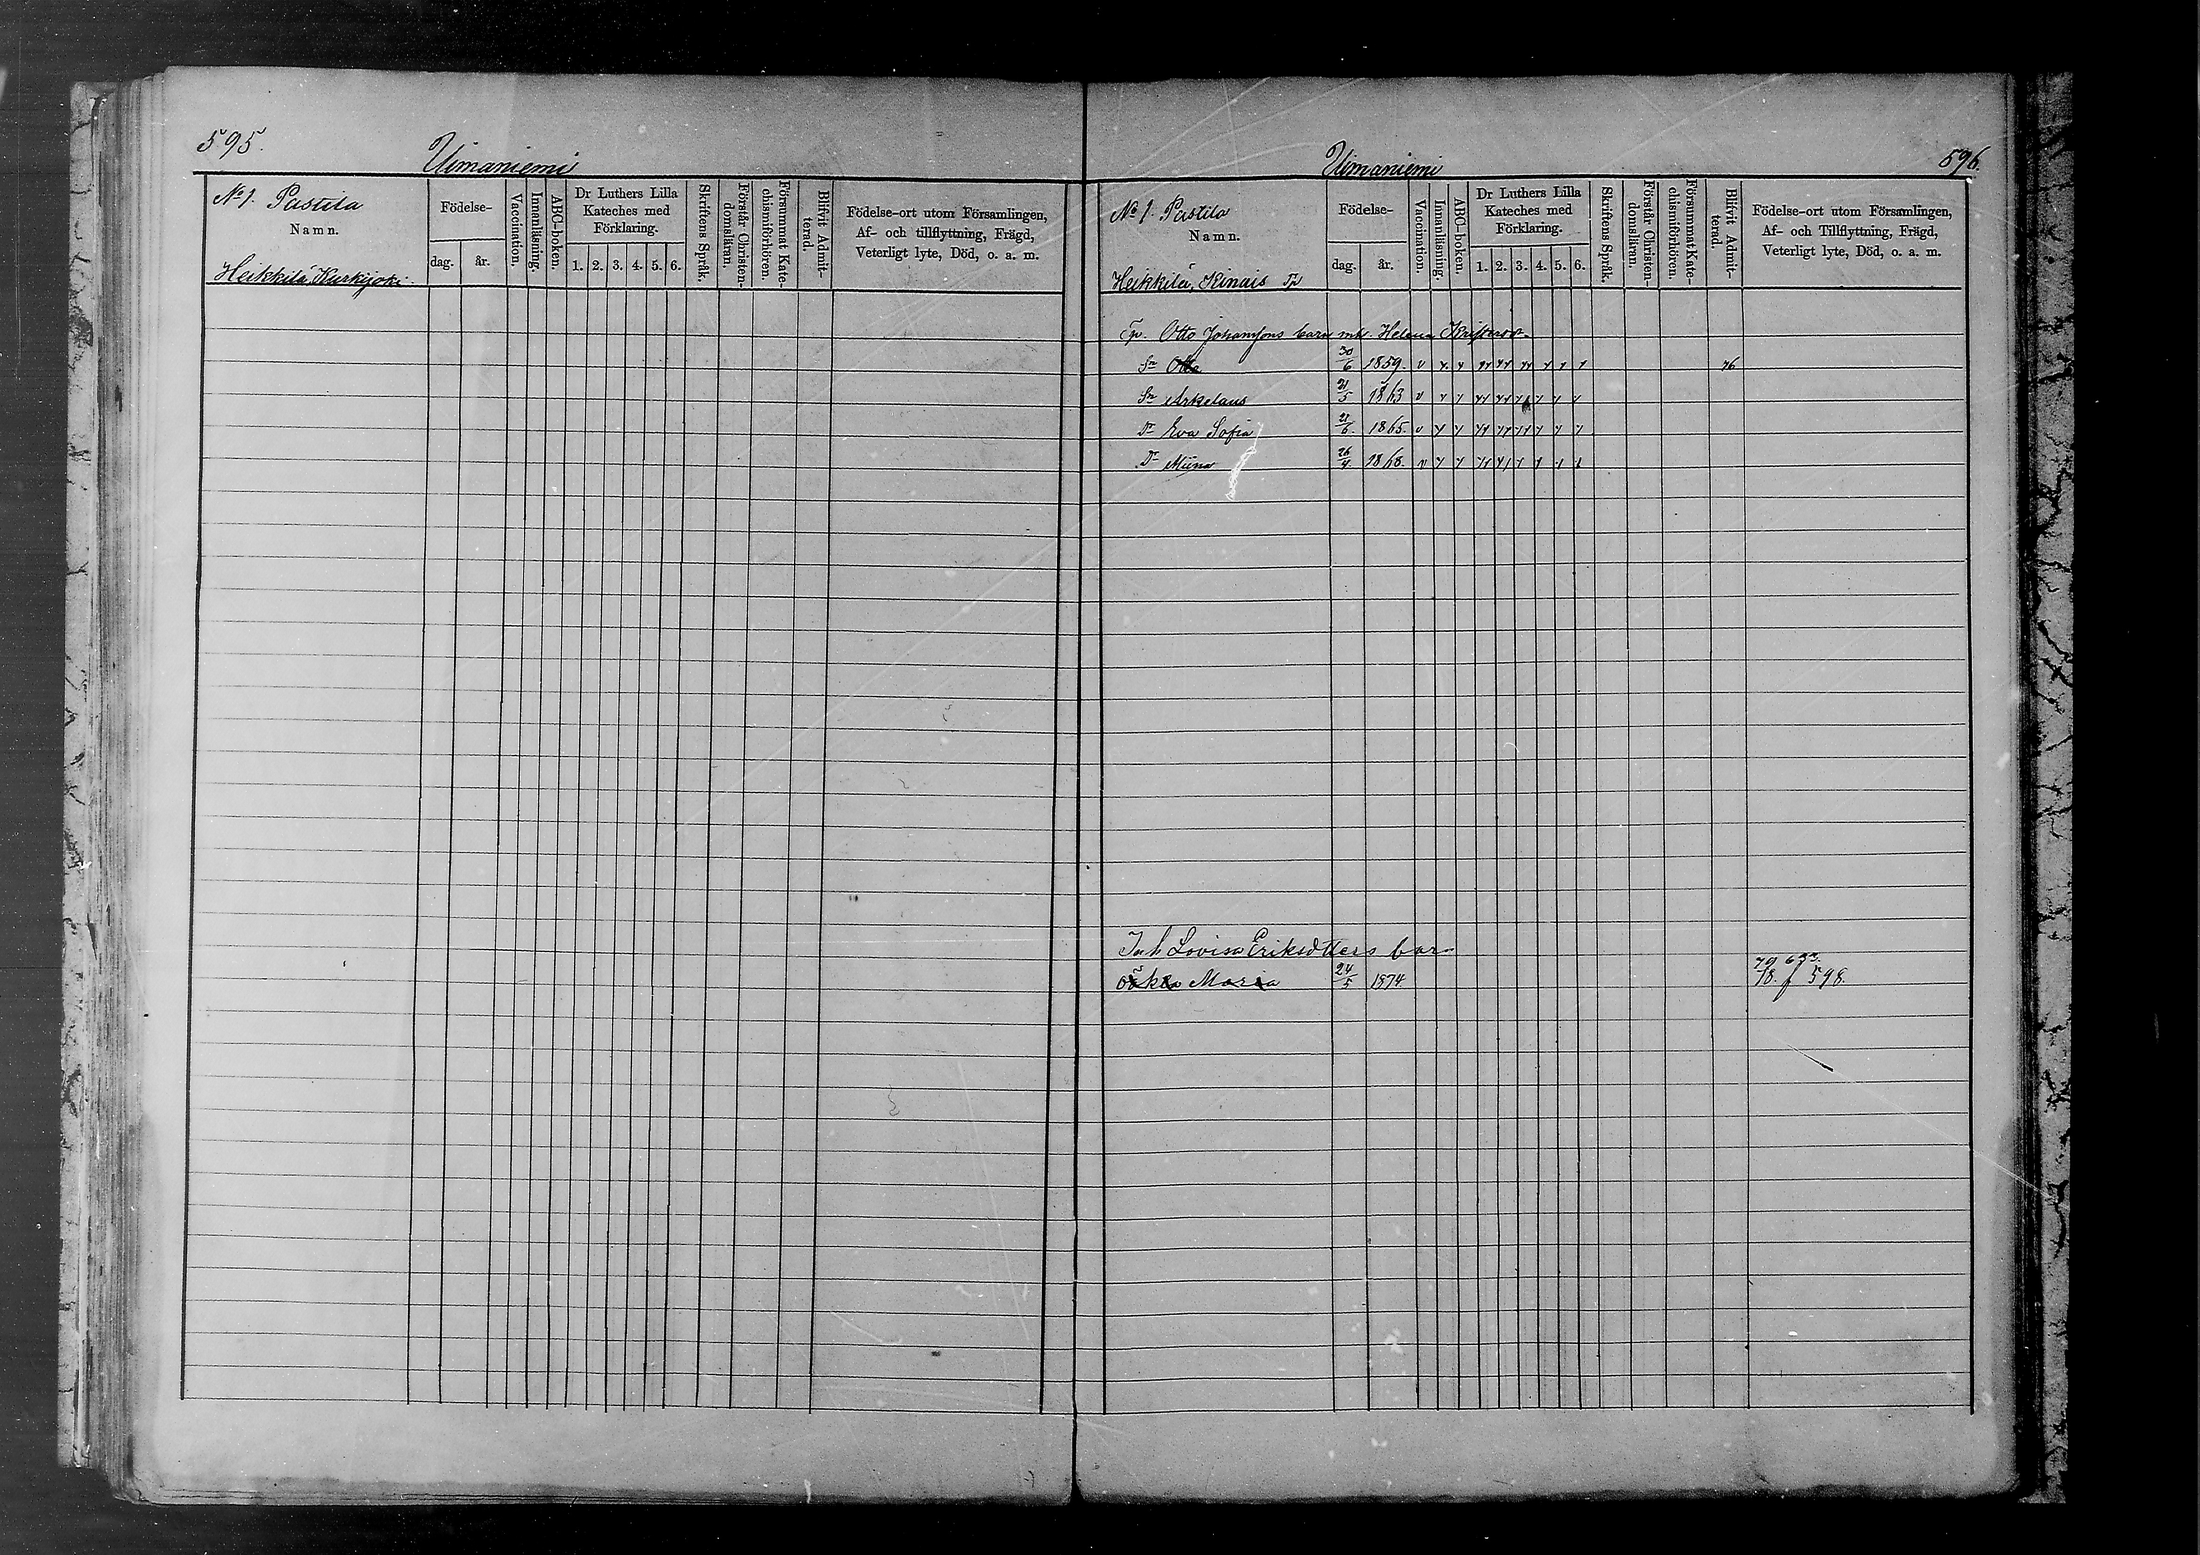 595.
Uimaniemi
No 1. Pastila
Namn.
Heikkilä, Kurkijoki.
Födelse-
dag.
år.
Vaccination.
Innanläsning.
ABC-boken.
Dr Luthers Lilla
Kateches med
Förklaring.
1. 2. 3. 4. 5. 6.
Skriftens Språk.
Förstår Christen-
domsläran.
Försummat Kate-
chismiförhören.
Blifvit Admit-
terad.
Födelse-ort utom Församlingen,
Af- och tillflyttning, Frägd,
Veterligt lyte, Död, o. a. m.
Uimaniemi
596.
No 1. Pastila
Namn.
Heikkilä, Kinais Tp
Födelse-
dag.
år.
Vaccination.
Innanläsning.
ABC-boken.
Dr Luthers Lilla
Kateches med
Förklaring.
1. 2. 3. 4. 5. 6.
Skriftens Språk.
Förstår Christen-
domsläran.
Försummat Kate-
chismiförhören.
Blifvit Admit-
terad.
Födelse-ort utom Församlingen,
Af- och Tillflyttning, Frägd,
Veterligt lyte, Död, o. a. m.
Tp. Otto Johanssons barn m. Helena
Sn Otto 30/6 1859. 76
Sn Arkelaus 21/5 1863
Dr Eva Sofia 21/6 1865.
Dr Miina 26/4 1868.
Inh Lovisa Eriksdotters barn
Maria 24/5 1874 18. f 598.